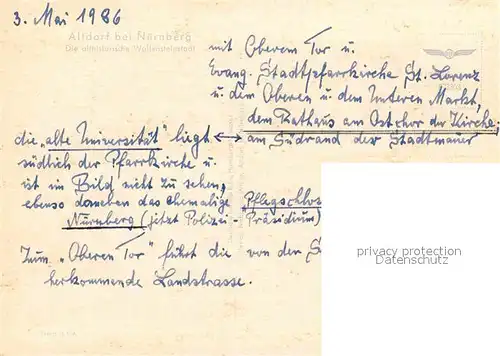 3. Mai 1986
Altdorf bei Nürnberg
Die althistorische Wallensteinstadt
mit Oberem Tor u.
Evang. Stadtpfarrkirche St. Lorenz
u. dem Oberen u. dem Unteren Markt,
dem Rathaus am Ostchor der Kirche;
die „alte Universität" liegt ↔ am Südrand der Stadtmauer
südlich der Pfarrkirche u.
ist im Bild nicht zu sehen,
ebenso daneben das ehemalige Pflegschlos
Nürnberg (jetzt Polizei-Präsidium)
Zum „Oberen Tor" führt die von den S
herkommende Landstrasse.
privacy protection
Datenschutz